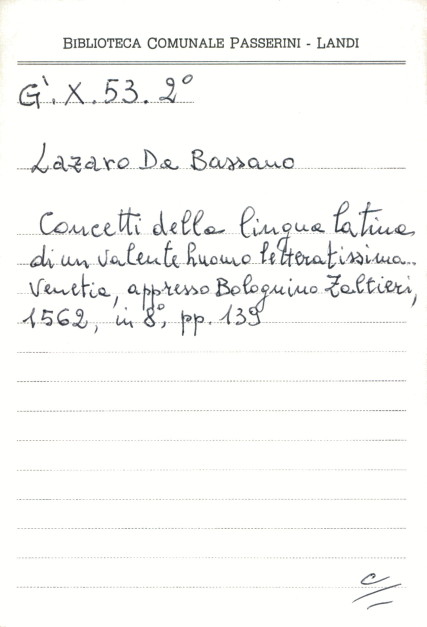 BIBLIOTECA COMUNALE PASSERINI - LANDI
G`. X. 53. 2º
Lazaro Da Bassano
Concetti della lingua latina
di un valente huomo letteratissimo..
Venetia, appresso Bologuino Zaltieri,
1562, in 8º, pp. 139
C